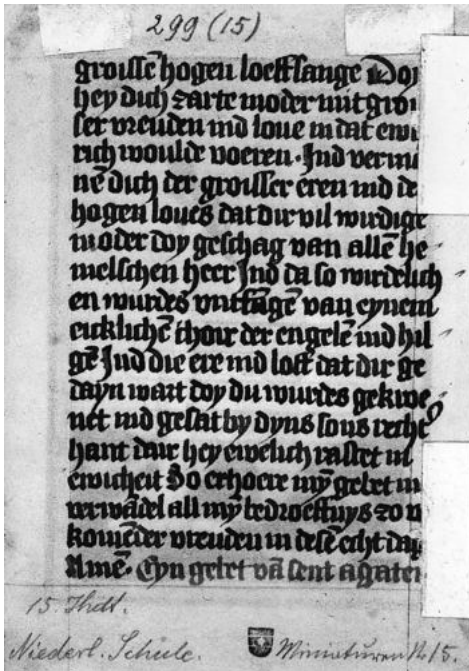 299 (15)
groissē hogen loeffsange Doi
hey dich zarte moder mit groi
ser vreuden ind loue in dat ewi
rich woulde voeren · Ind verma
nē dich der groisser eren ind de
hogen loues dat dir vil wirdige
moder doy geschag van allē he
melschen heer Ind da so wirdelich
en wurdes vntfāgē van eynem
eicklichē choir der engelē ind hil
gē Ind die ere ind loff dat dir ge
dayn wart doy du wurdes gekroe
net ind gesat by dyns sons recht
hant dair hey ewelich rastet in
ewicheit So erhoere mȳ gebet in
verwādel all mȳ bedroeffnys zo v
komēder vreuden in desē echt dag
Amē · Eyn gebet vā sent agaten
15. Jhdt.
Niederl. Schule.
Miniaturen N. 15.